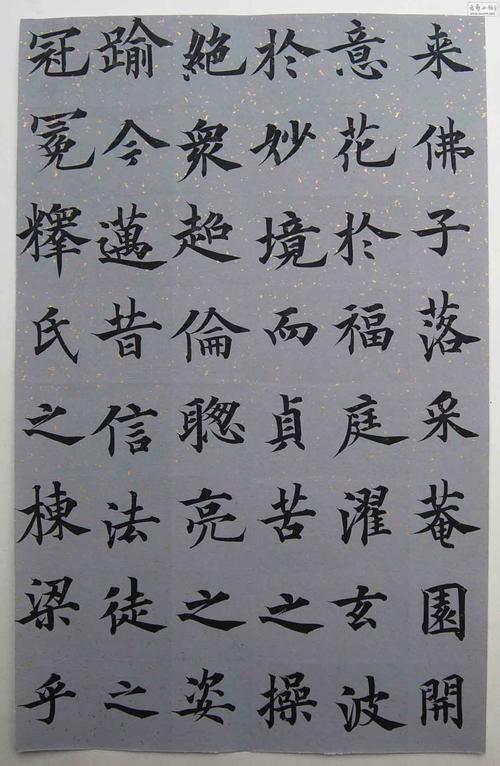 来佛子落采菴園開
意花於福庭濯玄波
於妙境而貞苦之操
絶衆超倫聰亮之姿
踰今邁昔信法徒之
冠冕釋氏之棟梁乎